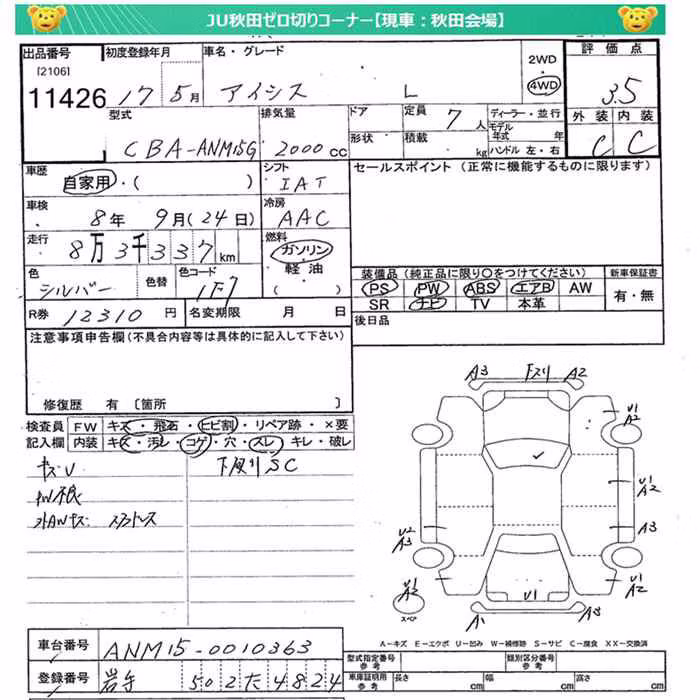 JU秋田ゼロ切りコーナー【現車：秋田会場】
出品番号 初度登録年月 車名・グレード 2WD 評価点
[2106] 4WD
11426 17年 5月 アイシス L 3.5
型式 排気量 ドア 定員 7人 ディーラー・並行 外装 内装
モデル年式 年
CBA-ANM15G 2000cc 形状 積載 kg ハンドル 左・右 C C
車歴 自家用・( ) シフト IAT セールスポイント (正常に機能するものに限ります)
車検 8年 9月(24日) 冷房 AAC
走行 8万3千337km 燃料 ガソリン
軽油
( )
色 シルバー 色替 色コード 1F7 装備品 (純正品に限り〇をつけてください) 新車保証書
PS PW ABS エアB AW 有・無
SR ナビ TV 本革
R券 12310円 名変期限 月 日 後日品
注意事項申告欄 (不具合内容等は具体的に記入して下さい)
修復歴 有 [箇所 ]
検査員 FW キズ・飛石・ヒビ割・リペア跡・×要
記入欄 内装 キズ・汚レ・コゲ・穴・スレ・キレ・破レ
キズU 下廻りSC
PW不良
A3 下スリ A2
U1
A2
U1
A2
U2
A3
A3
A2
スペア
U1
A2
A1 A3
A－キズ E－エクボ U－凹み W－補修跡 S－サビ C－腐食 XX－交換済
車台番号 ANM15-0010363
登録番号 岩手 502 た 4824
型式指定番号 参考 類別区分番号 参考
車庫証明用 参考 長さ cm 幅 cm 高さ cm